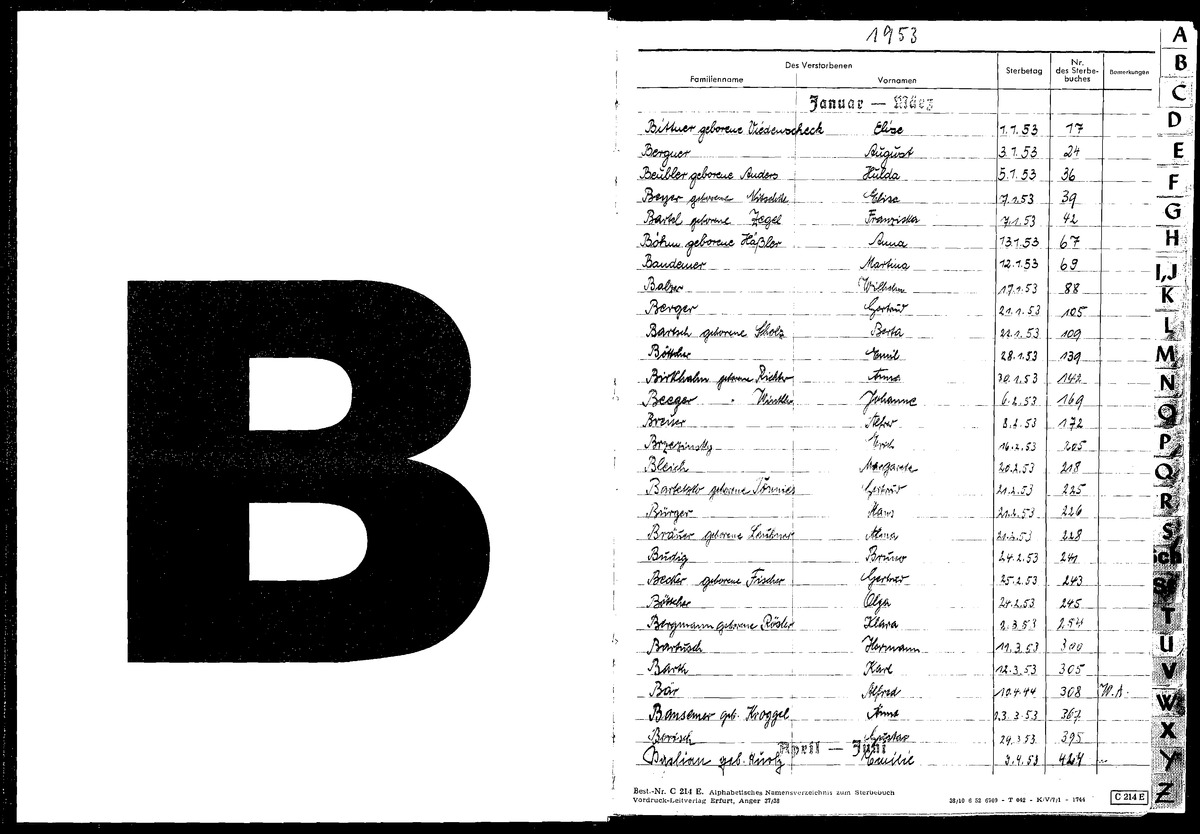 B
1953
Des Verstorbenen
Familienname Vornamen Sterbetag Nr. des Sterbebuches Bemerkungen
Januar — März
Bittner geborene Viedenscheck Elise 1.1.53 17
Bergner August 3.1.53 24
Beubler geborene Anders Hulda 5.1.53 36
Beyer geborene Nitschke Elise 7.1.53 39
Bartel geborene Jegel Franziska 7.1.53 42
Böhm geborene Häßler Anna 13.1.53 67
Bandemer Martina 12.1.53 69
Balzer Wilhelm 17.1.53 88
Berger Gertrud 21.1.53 105
Bartsch geborene Scholz Berta 22.1.53 109
Böttcher Emil 28.1.53 139
Birkhahn geborene Richter Anna 30.1.53 142
Beeger " Winkler Johanne 6.2.53 169
Breuer Alfred 8.2.53 172
Brzezinsky Erich 16.2.53 205
Bleich Margarete 20.2.53 218
geborene Tönnies Gertrud 21.2.53 225
Bürger Hans 21.2.53 226
Bräuer geborene 21.2.53 228
Budig Bruno 24.2.53 241
Becker geborene Fischer 25.2.53 243
Böttcher Olga 24.2.53 245
Bergmann geborene Rösler Klara 2.3.53 254
Bartusch Hermann 11.3.53 300
Barth Karl 12.3.53 305
Bär Alfred 10.4.44 308 W.A.
Bansemer geb. Kroggel Anna 13.3.53 367
Borisch Gustav 24.3.53 395
April — Juni
Bastian geb. Kurtz Emilie 3.4.53 427
Best.-Nr. C 214 E. Alphabetisches Namensverzeichnis zum Sterbebuch
Vordruck-Leitverlag Erfurt, Anger 37/38
38/10 6 52 6909 - T 042 - K/V/7/1 - 1744
C 214 E
A
B
C
D
E
F
G
H
I,J
K
L
M
N
O
P
Q
R
S
Sch
St
T
U
V
W
X
Y
Z